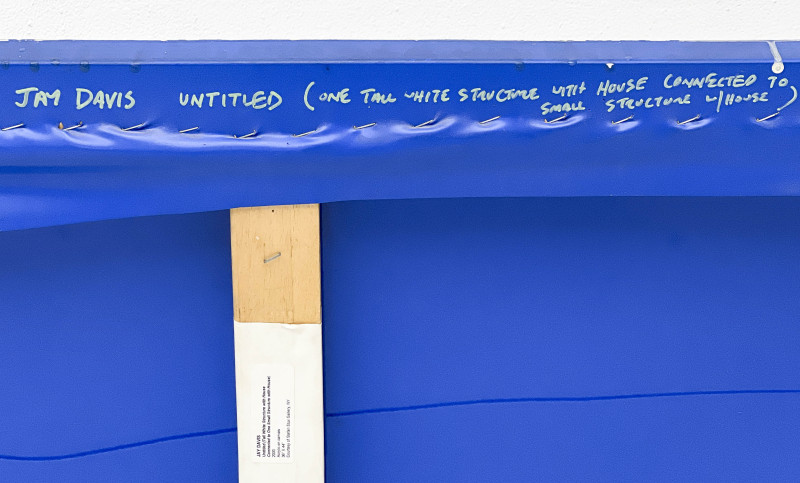 JAY DAVIS UNTITLED (ONE TALL WHITE STRUCTURE WITH HOUSE CONNECTED TO
SMALL STRUCTURE W/HOUSE)
JAY DAVIS
Untitled (Tall White Structure with House
Connected to One Small Structure with House)